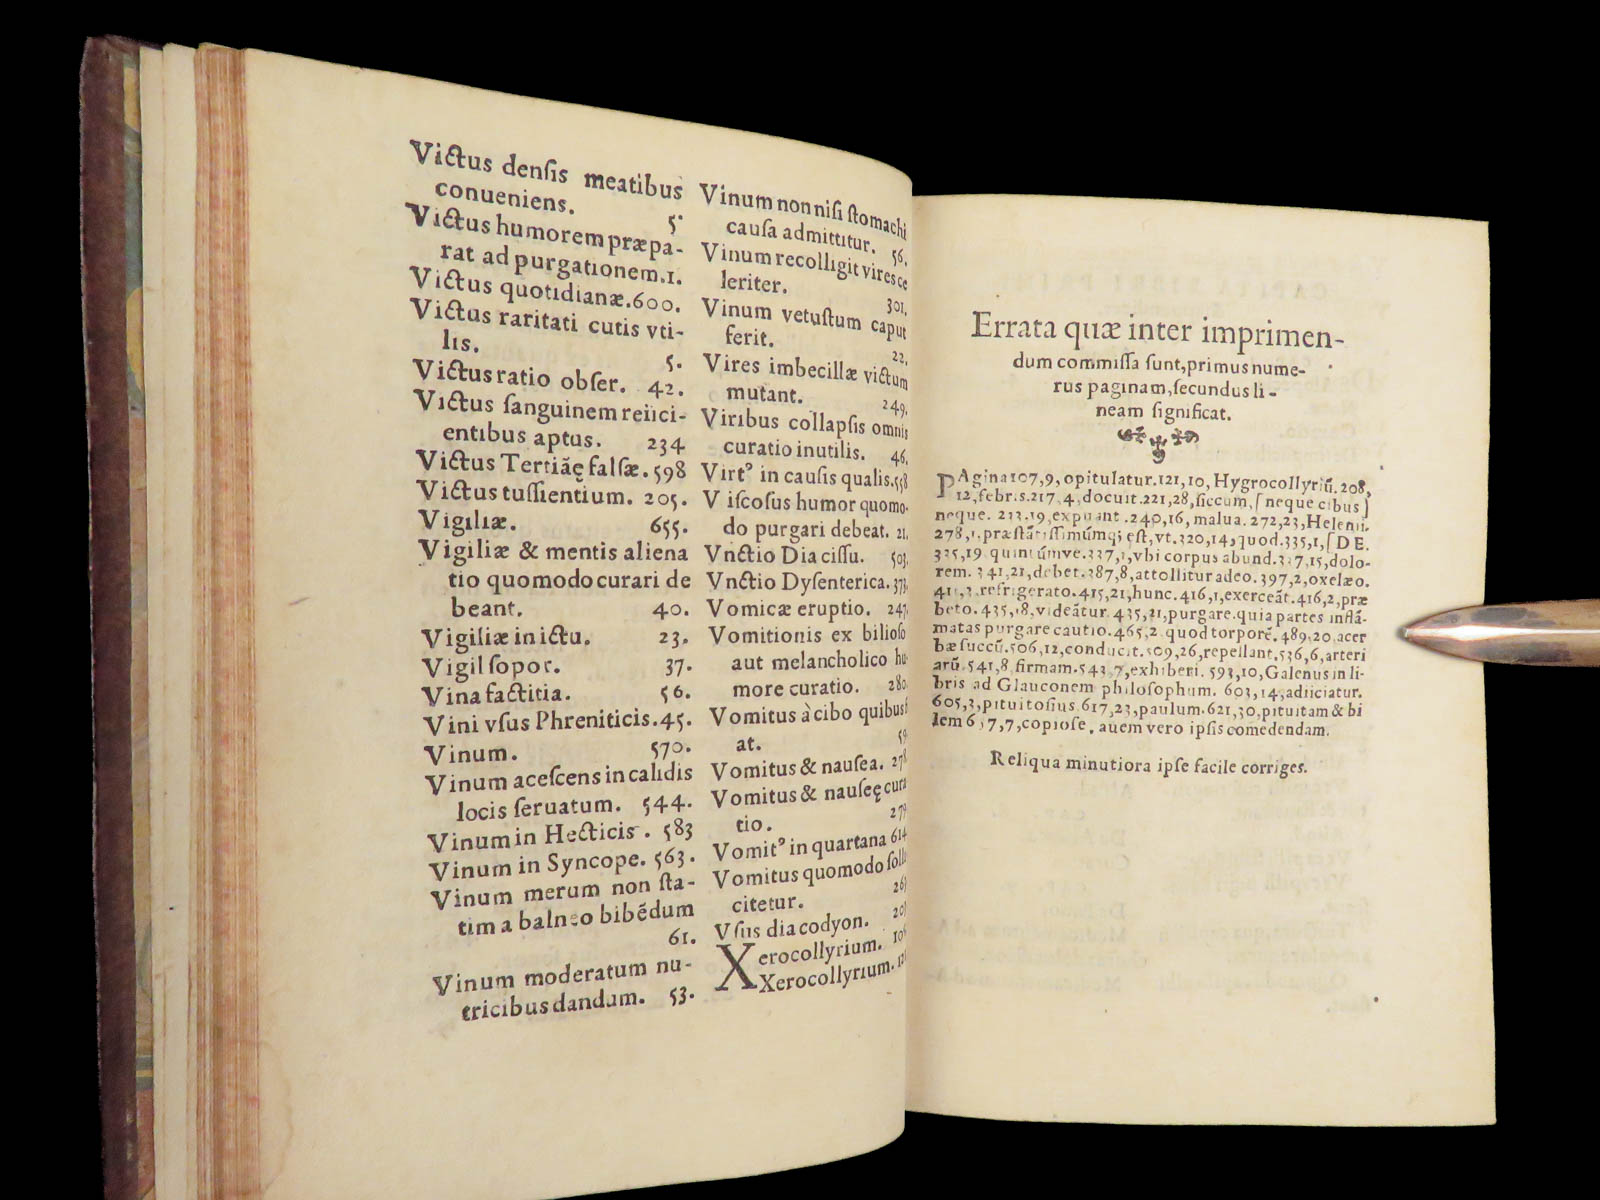 Victus densis meatibus
conueniens. 5
Victus humorem præpa-
rat ad purgationem. 1.
Victus quotidianæ. 600.
Victus raritati cutis vti-
lis. 5.
Victus ratio obser. 42.
Victus sanguinem reiici-
entibus aptus. 234
Victus Tertiãę falsæ. 598
Victus tussientium. 205.
Vigiliæ. 655.
Vigiliæ & mentis aliena
tio quomodo curari de
beant. 40.
Vigiliæ in ictu. 23.
Vigil sopor. 37.
Vina factitia. 56.
Vini vsus Phreniticis. 45.
Vinum. 570.
Vinum acescens in calidis
locis seruatum. 544.
Vinum in Hecticis. 583
Vinum in Syncope. 563.
Vinum merum non sta-
tim a balneo bibẽdum
61.
Vinum moderatum nu-
tricibus dandum. 53.
Vinum non nisi stomachi
causa admittitur. 56.
Vinum recolligit vires ce
leriter. 301.
Vinum vetustum caput
ferit. 22.
Vires imbecillæ victum
mutant. 249.
Viribus collapsis omnis
curatio inutilis. 46.
Virtꝰ in causis qualis. 558
Viscosus humor quomo-
do purgari debeat. 21.
Vnctio Diacissu. 503.
Vnctio Dysenterica. 373.
Vomicæ eruptio. 247.
Vomitionis ex bilioso
aut melancholico hu-
more curatio. 280.
Vomitus à cibo quibus fi
at.
Vomitus & nausea. 278
Vomitus & nauseę cura
tio. 279
Vomitꝰ in quartana 614
Vomitus quomodo solli
citetur.
Vsus diacodyon.
Xerocollyrium.
Xerocollyrium.
Errata quæ inter imprimen-
dum commissa sunt, primus nume-
rus paginam, secundus li-
neam significat.
PAgina 107,9, opitulatur. 121, 10, Hygrocollyriũ. 208,
12, febris. 217, 4, docuit. 221, 28, siccum, [neque cibus]
neque. 233. 19, expuant. 240, 16, malua. 272, 23, Helenii.
278, 1. præstãtissimúmq; est, vt. 320, 14, quod. 335, 1, [DE.
335, 19. quintúmve. 337, 1, vbi corpus abund. 337, 15, dolo-
rem. 341, 21, debet. 387, 8, attollitur adeo. 397, 2, oxelæo.
411, 3, refrigerato. 415, 21, hunc. 416, 1, exerceãt. 416, 2, præ
beto. 435, 18, videãtur. 435, 21, purgare. quia partes inflã-
matas purgare cautio. 465, 2. quod torporẽ. 489, 20, acer
bæ succũ. 506, 12, conducit. 509, 26, repellant. 536, 6, arteri
arũ. 541, 8, firmam. 543, 7, exhiberi. 593, 10, Galenus in li-
bris ad Glauconem philosophum. 603, 14, adiiciatur.
605, 3, pituitosius. 617, 23, paulum. 621, 30, pituitam & bi
lem 637, 7, copiose, auem vero ipsis comedendam.
Reliqua minutiora ipse facile corriges.